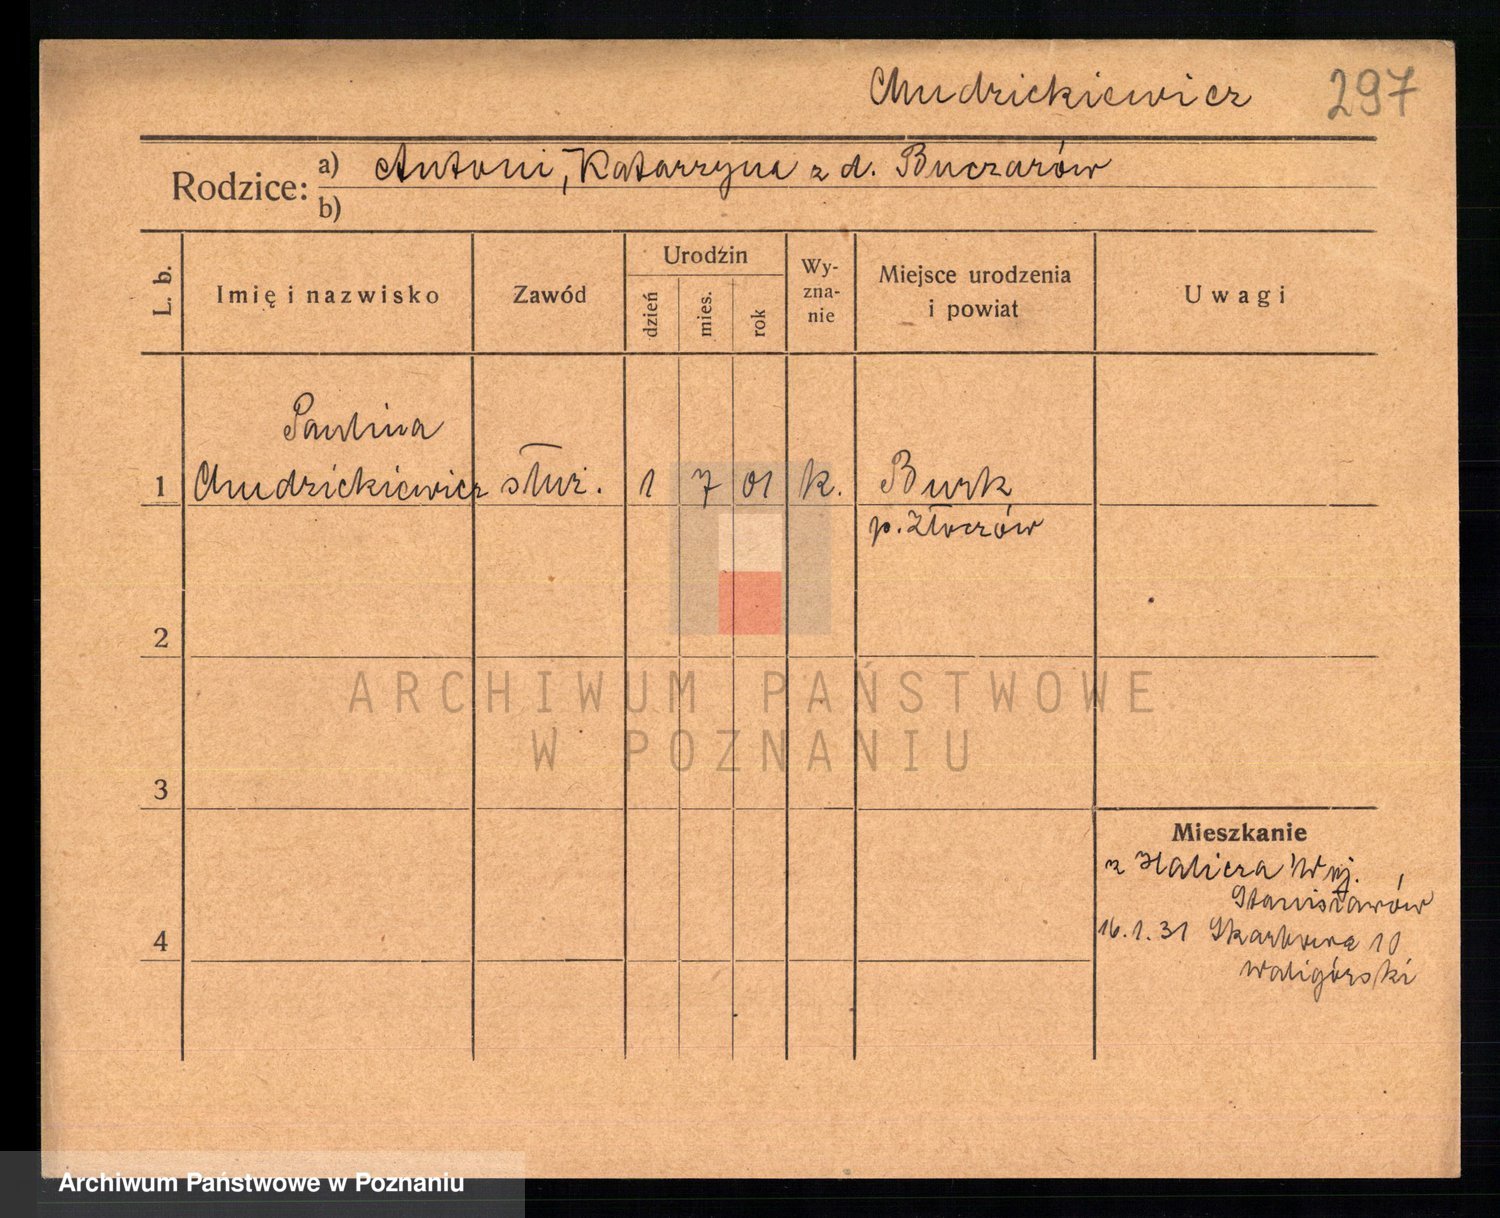 Chudzickiewicz 297
Rodzice: a) Antoni, Katarzyna z d. Buczarów
b)
L. b. Imię i nazwisko Zawód Urodzin dzień mies. rok Wy-zna-nie Miejsce urodzenia i powiat Uwagi
Paulina
1 Chudzickiewicz służ. 1 7 01 k. Busk
p. Złoczów
2
ARCHIWUM PAŃSTWOWE
W POZNANIU
3
Mieszkanie
z Halicza Woj.
Stanisławów
4 16.1.31 Skarbowa 10
Waligórski
Archiwum Państwowe w Poznaniu